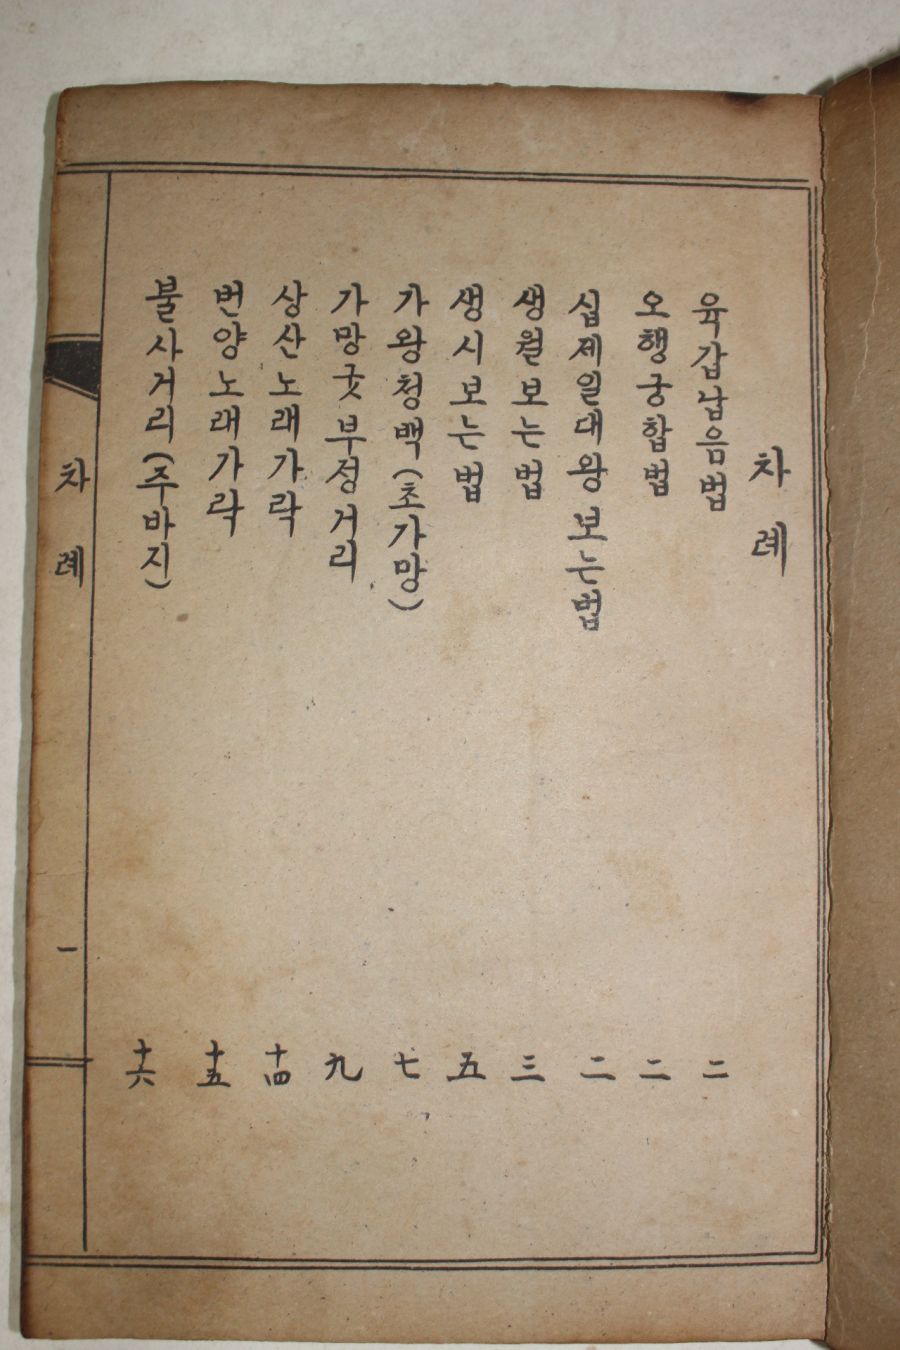 차례
육갑납음법 二
오행궁합법 二
십제일대왕보는법 二
생월보는법 三
생시보는법 五
가왕청백(초가망) 七
가망굿부정거리 九
상산노래가락 十四
번양노래가락 十五
불사거리(주바지) 十六
차례 一